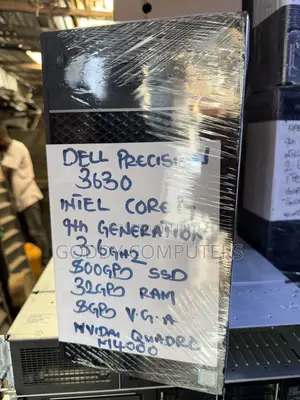 DELL PRECISION
3630
INTEL CORE
9th GENERATION
3.6GHz
GOODY COMPUTERS
800GB SSD
32GB RAM
8GB V.G.A
NVIDAI QUADRO
M4000